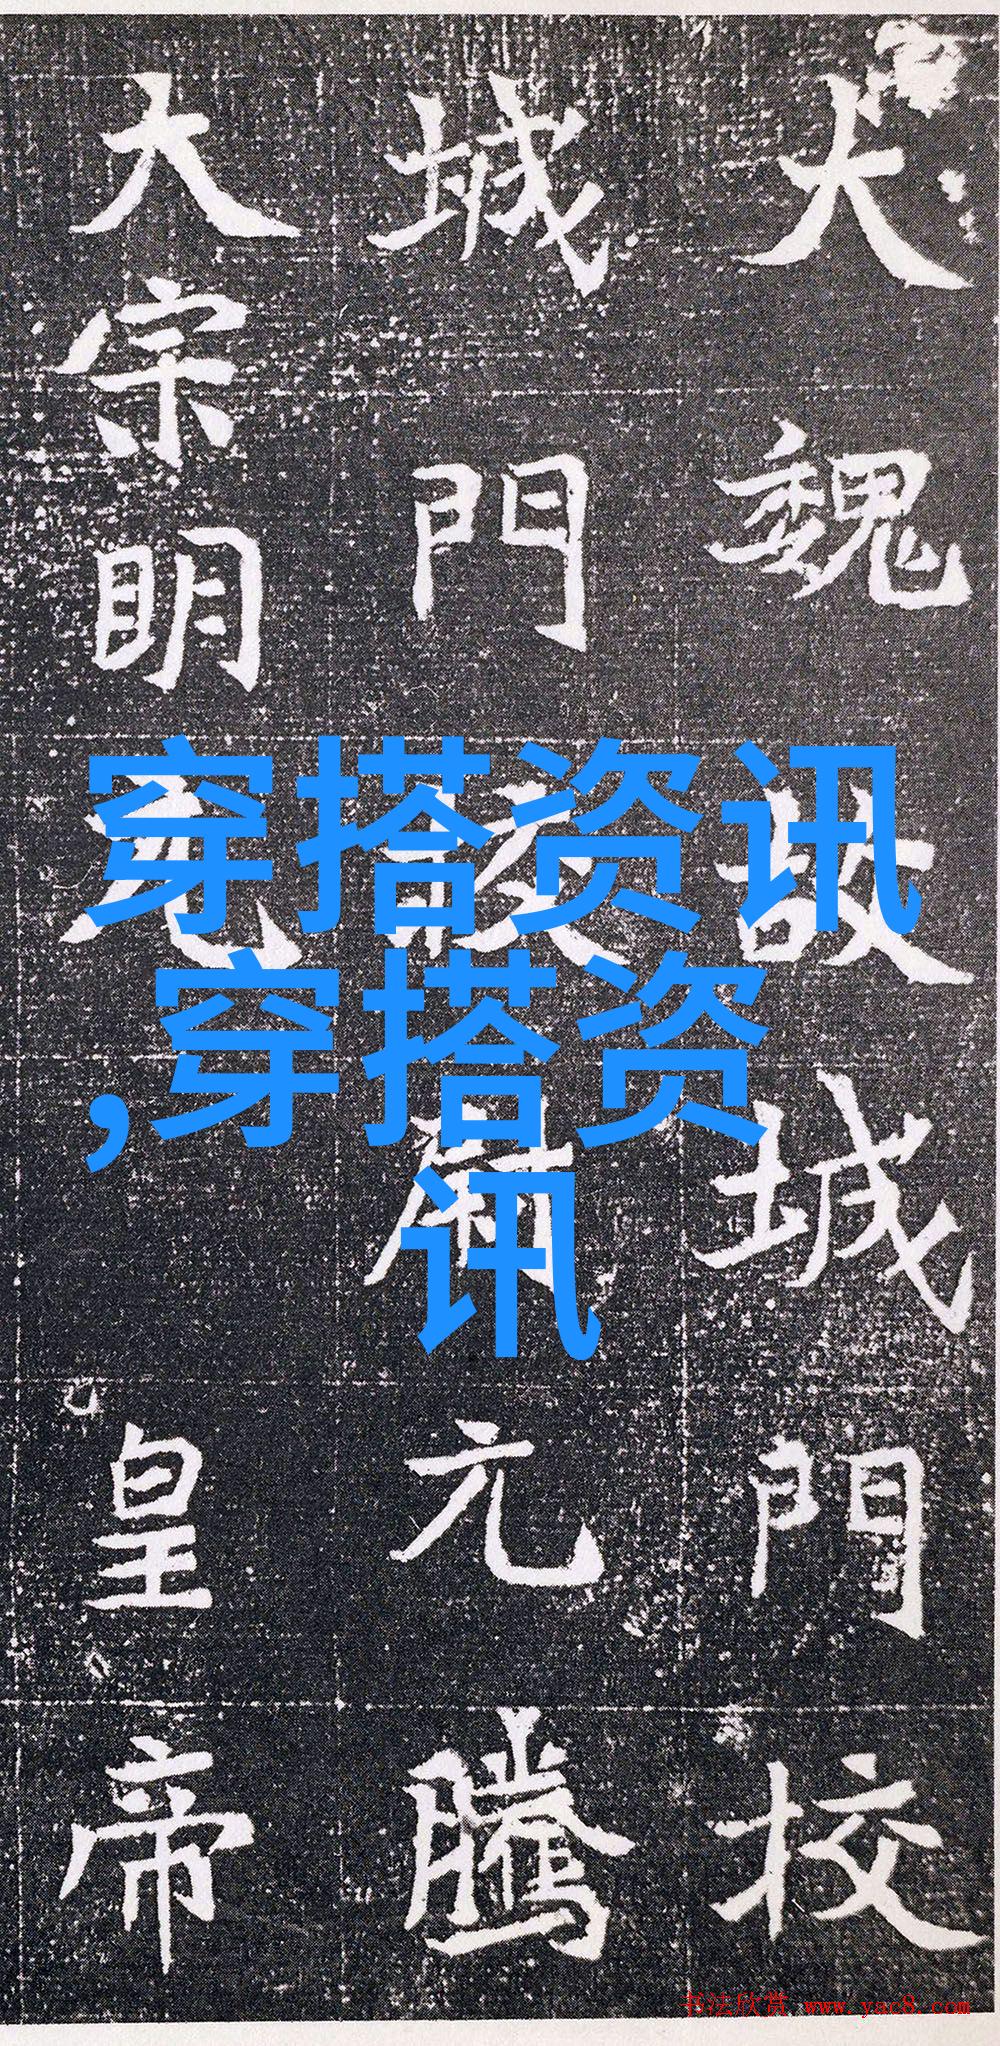 大魏故城門校
城門校尉元騰
大宗明元皇帝
穿搭资讯
,穿搭资
讯
书法欣赏 www.yac8.com